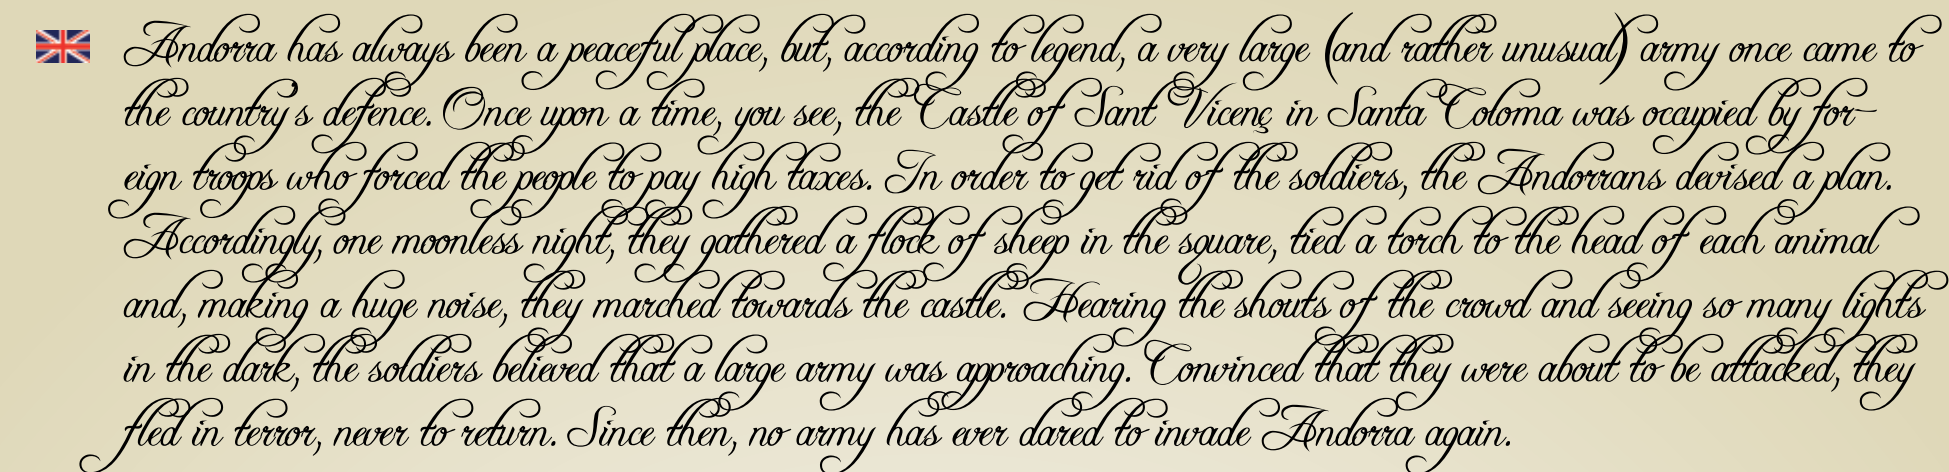 Andorra has always been a peaceful place, but, according to legend, a very large (and rather unusual) army once came to
the country's defence. Once upon a time, you see, the Castle of Sant Vicenç in Santa Coloma was occupied by for-
eign troops who forced the people to pay high taxes. In order to get rid of the soldiers, the Andorrans devised a plan.
Accordingly, one moonless night, they gathered a flock of sheep in the square, tied a torch to the head of each animal
and, making a huge noise, they marched towards the castle. Hearing the shouts of the crowd and seeing so many lights
in the dark, the soldiers believed that a large army was approaching. Convinced that they were about to be attacked, they
fled in terror, never to return. Since then, no army has ever dared to invade Andorra again.